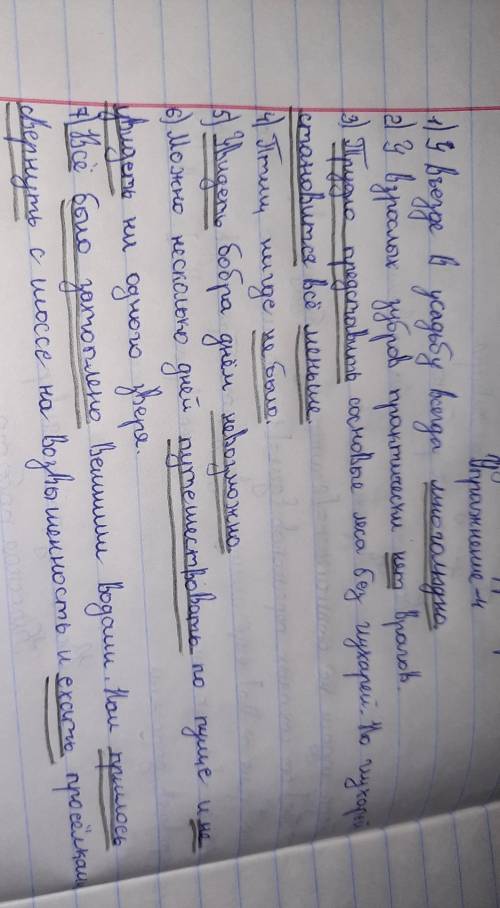 Упражнение-4
1) У въезде в усадьбу всегда многолюдно.
2) У взрослых зубров практически нет врагов.
3) Трудно представить сосновые леса без глухарей. Но глухарей
становится всё меньше.
4) Птиц нигде не было.
5) Увидеть бобра днём невозможно
6) Можно несколько дней путешествовать по пуще и не
увидеть ни одного зверя.
7) Всё было затоплено вешними водами. Нам пришлось
свернуть с шоссе на возвышенность и ехать просёлками